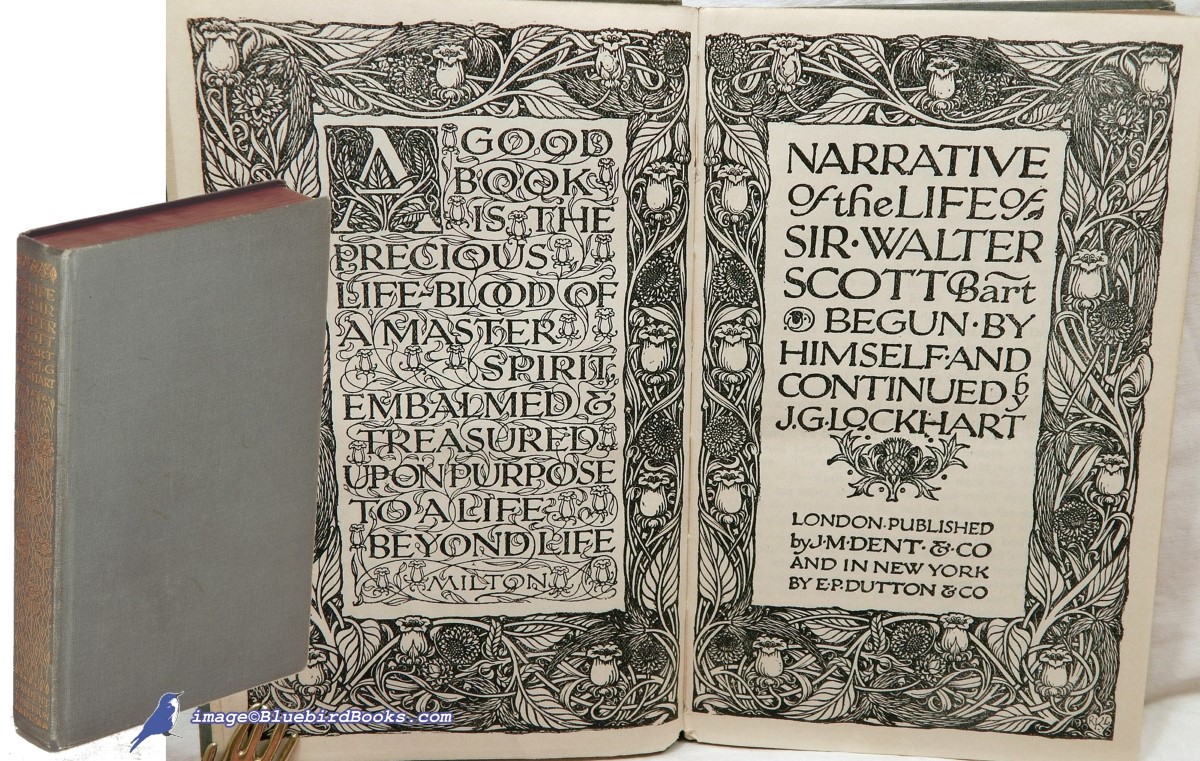 A GOOD
BOOK
IS THE
PRECIOUS
LIFE-BLOOD OF
A MASTER
SPIRIT,
EMBALMED &
TREASURED
UPON PURPOSE
TO A LIFE
BEYOND LIFE
MILTON
NARRATIVE
of the LIFE of
SIR·WALTER
SCOTT Bart
BEGUN·BY
HIMSELF·AND
CONTINUED by
J.G.LOCKHART
LONDON.PUBLISHED
by J·M·DENT·&·CO
AND IN NEW YORK
BY E·P·DUTTON & CO
image©BluebirdBooks.com